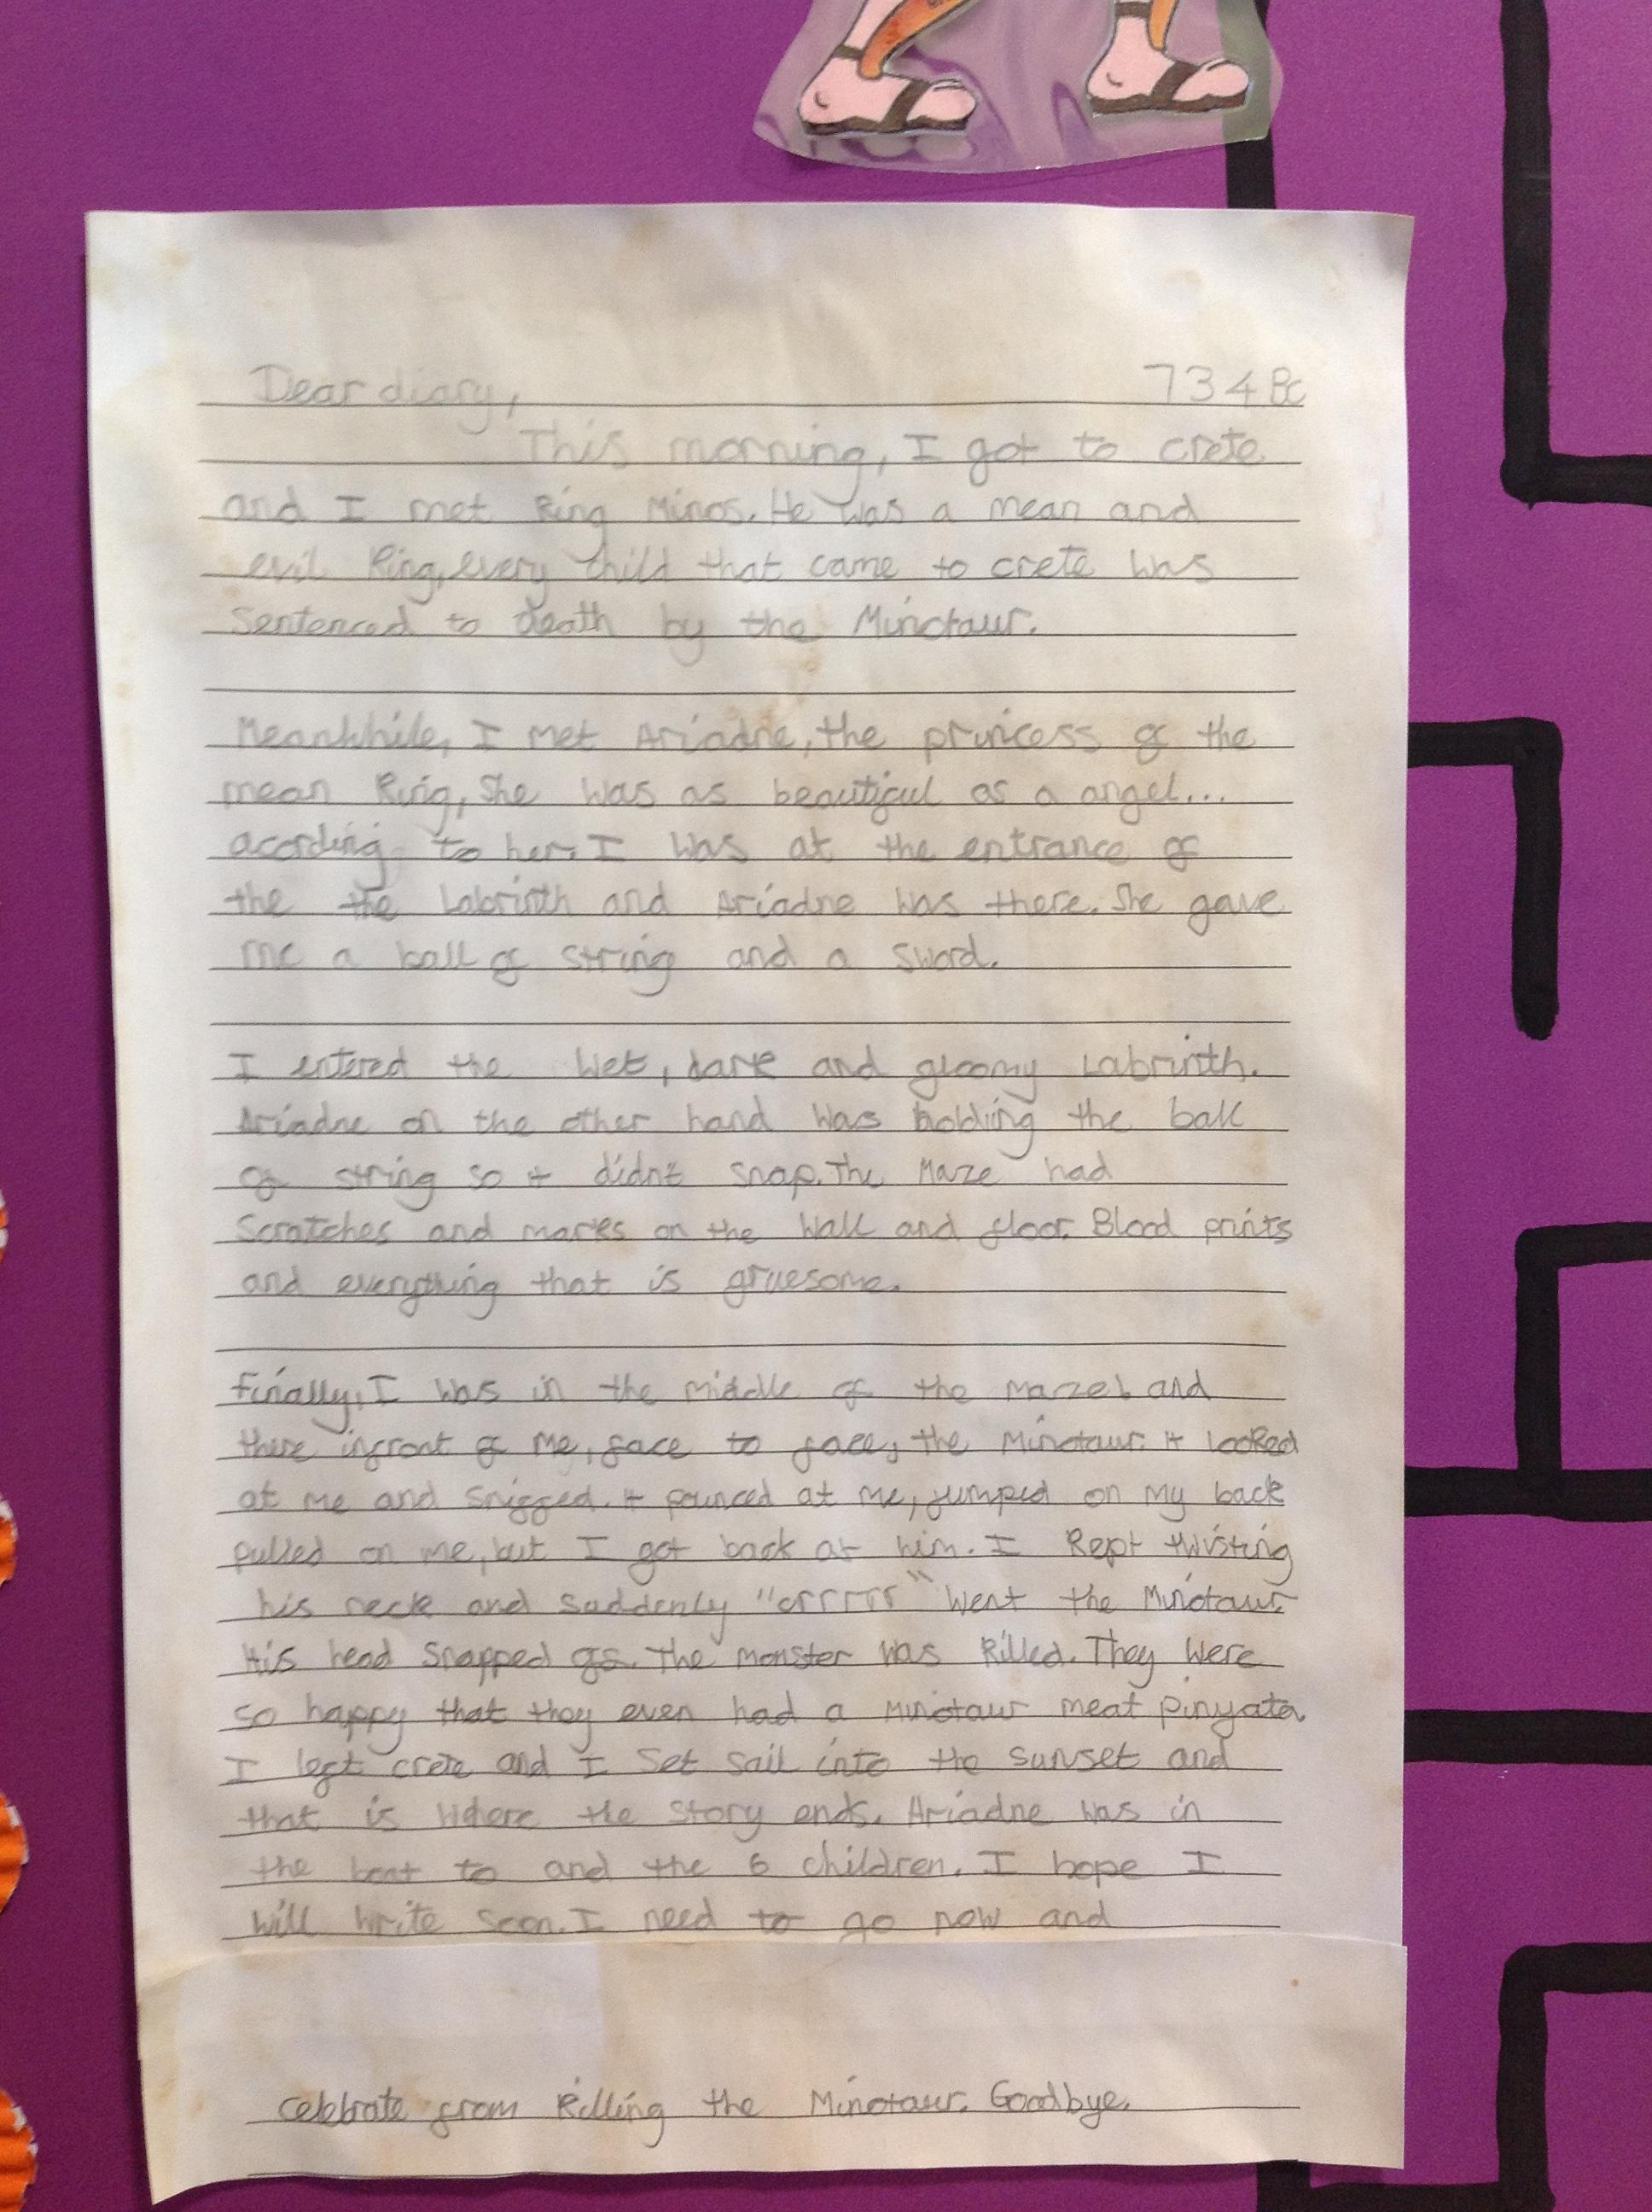 Dear diary, 734 Bc
This morning, I got to crete
and I met King Minos. He was a mean and
evil King, every child that came to crete was
sentenced to death by the Minotaur.
Meanwhile, I met Ariadne, the princess of the
mean King, She was as beautiful as a angel...
acording to her. I was at the entrance of
the the Labrinth and Ariadne was there. She gave
me a ball of string and a sword.
I entered the wet, dark and gloomy Labrinth.
Ariadne on the other hand was holding the ball
of string so it didnt snap. The Maze had
scratches and marks on the wall and floor. Blood prints
and everything that is gruesome.
Finally, I was in the middle of the and
there infront of me, face to face, the Minotaur. It looked
at me and sniffed. It pounced at me, jumped on my back
pulled on me, but I got back at him. I kept twisting
his neck and suddenly "arrrrr" went the Minotaur.
His head snapped off. The monster was killed. They were
so happy that they even had a minotaur meat pinyata.
I left crete and I set sail into the sunset and
that is where the story ends. Ariadne was in
the boat to and the 6 children. I hope I
will write soon. I need to go now and
celebrate from killing the Minotaur. Goodbye.